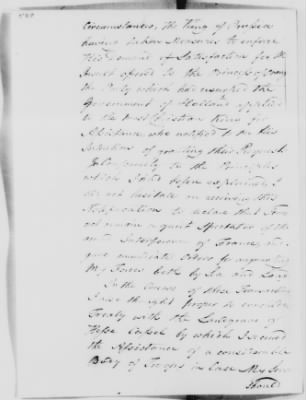 Circumstances, the King of Prussia
having taken Measures to enforce
His Demand of Satisfaction for the
Insult offered to the Princess of Orange
the Party which had usurped the
Government of Holland applied
to the most Christian King for
Assistance, who notified to Me His
Intention of granting their Request
In Conformity to the Principles
which I had before explained, I
did not hesitate on receiving this
Notification to declare that I could
not remain a quiet Spectator of the
armed Interference of France, and
gave immediate Orders for augmenting
My Forces both by Sea and Land
In the Course of these Transactions
I also thought proper to conclude a
Treaty with the Landgrave of
Hesse Cassel by which I secured
the Assistance of a considerable
Body of Troops in Case My Service
should